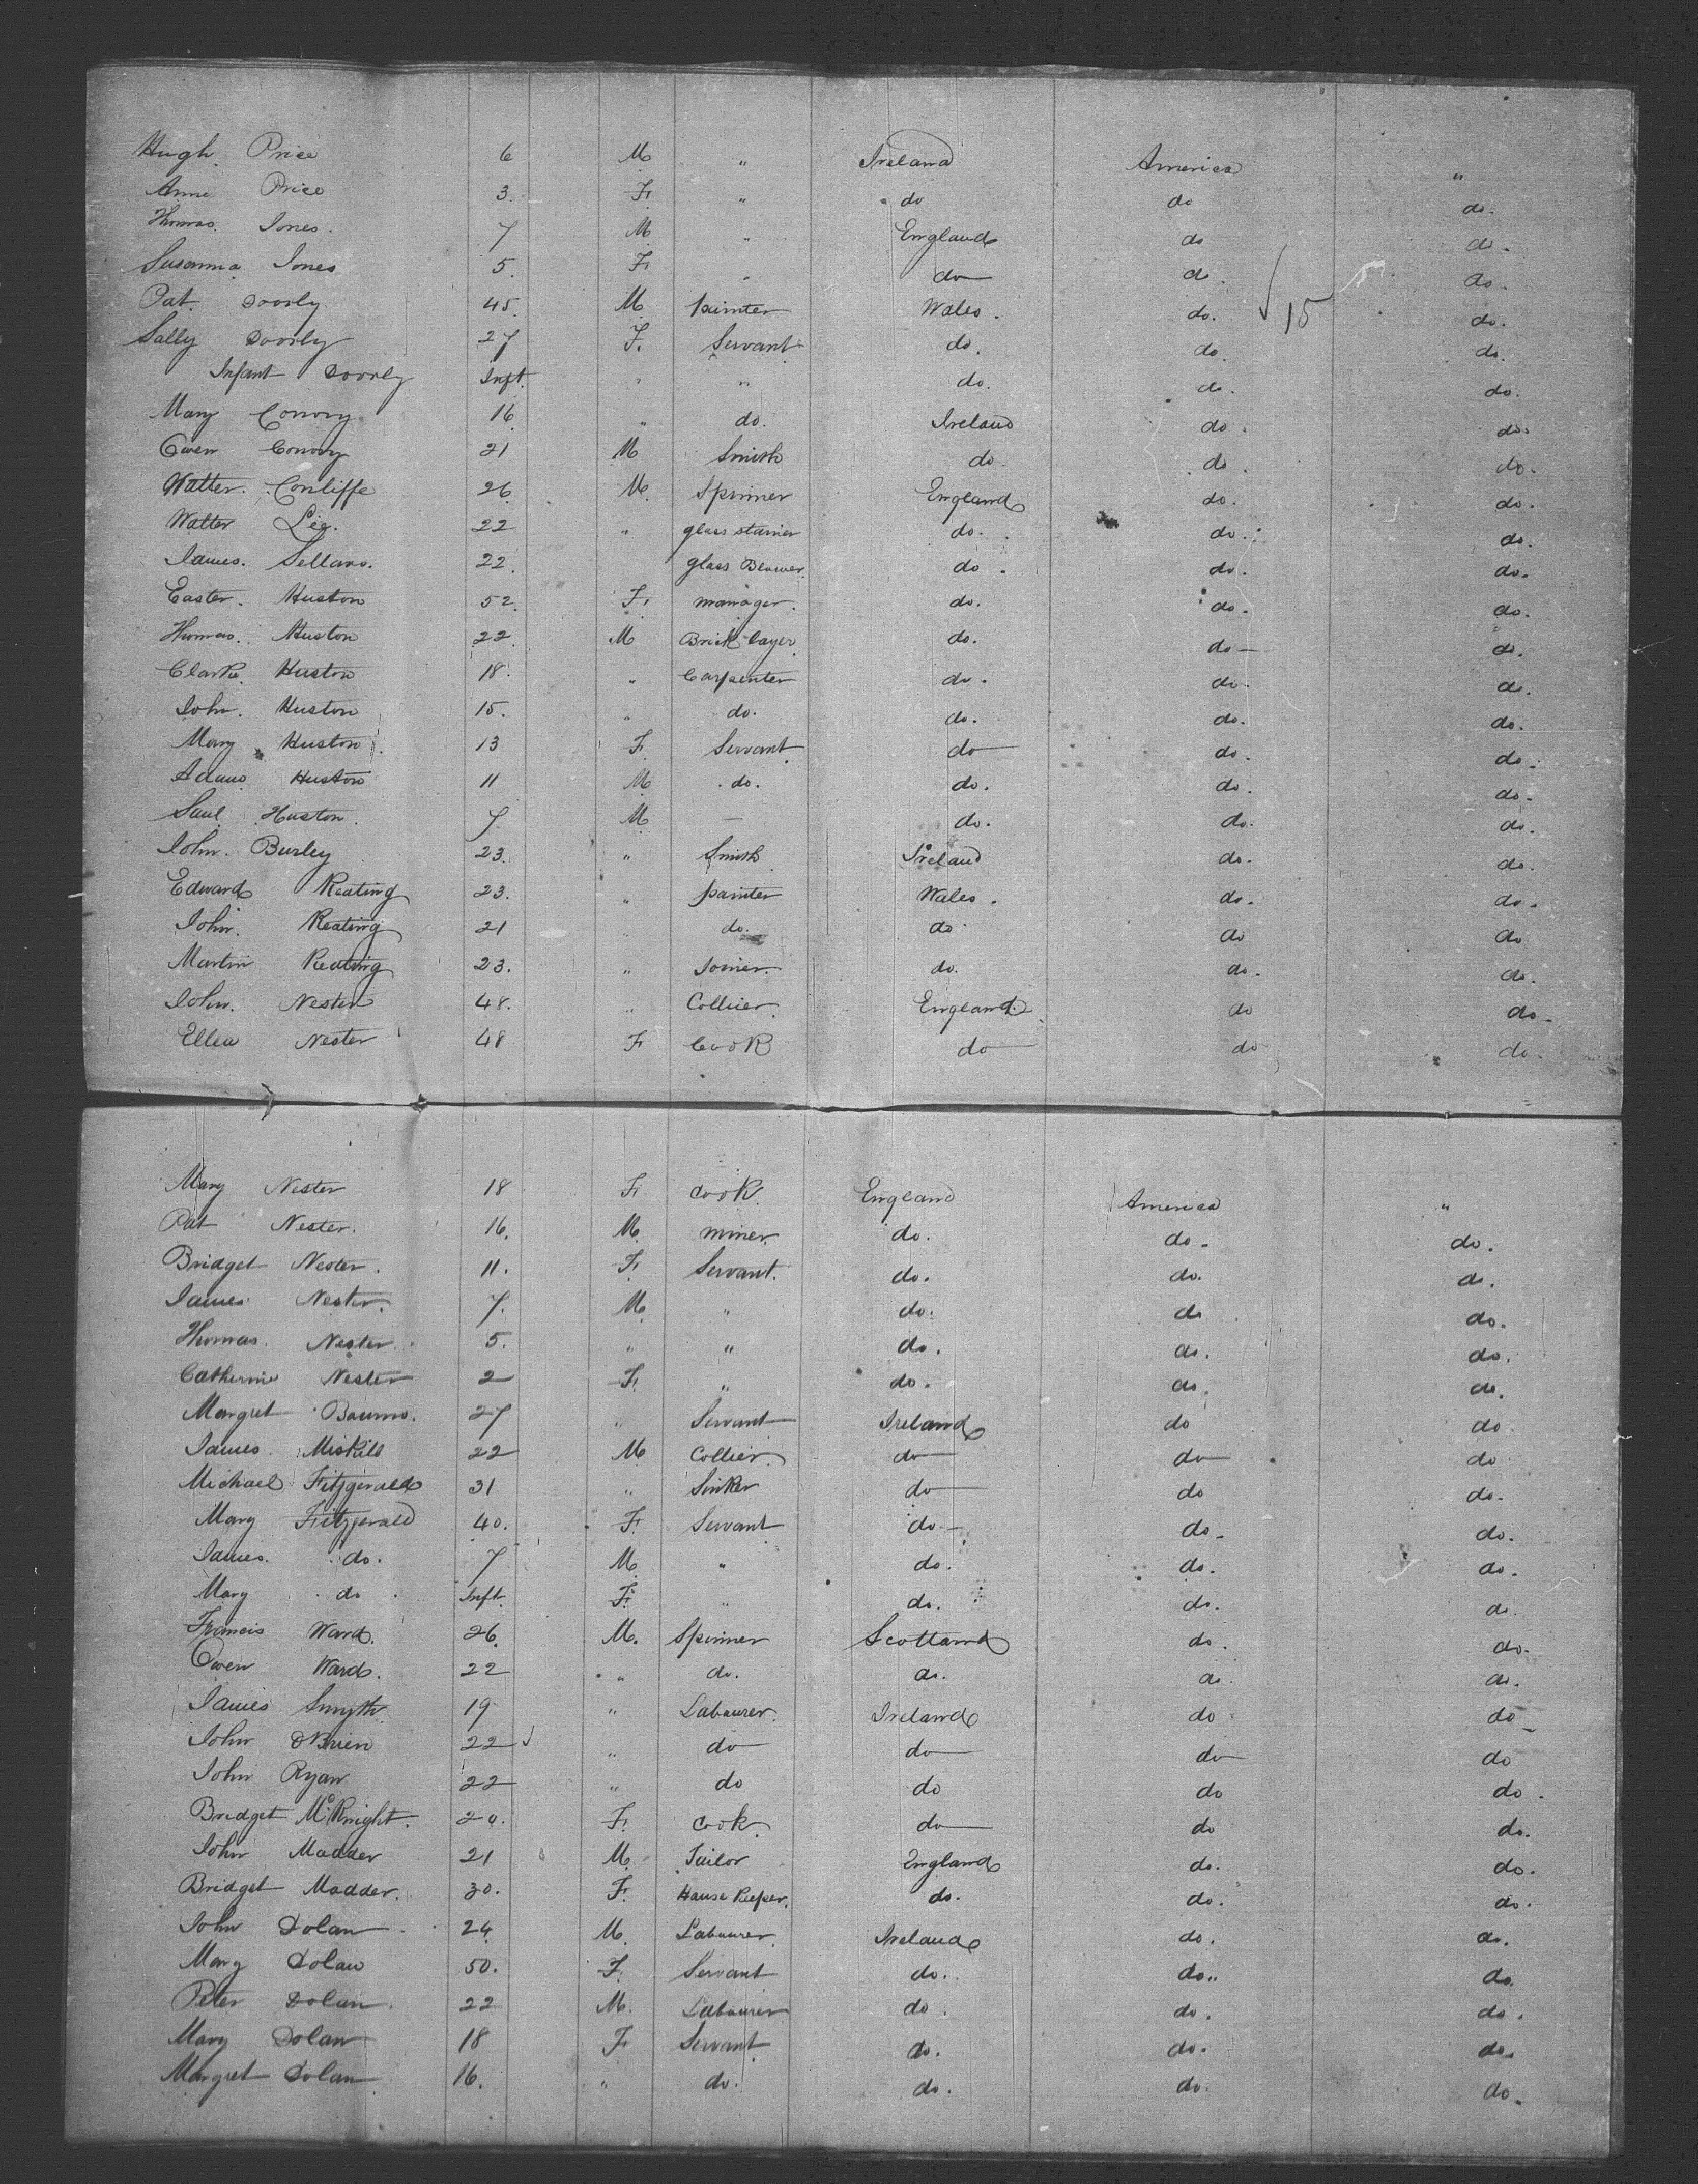 Hugh Price 6 M " Ireland America "
Anne Price 3. F. " do do do.
Thomas Jones. 7 M " England do do.
Susanna Jones 5. F. " do do. do.
Pat. Doorly 45. M painter Wales. do. 15 do.
Sally Doorly 27 F. Servant do. do. do.
Infant Doorly Inft. " " do. do. do.
Mary Conory 16 " do. Ireland do. do.
Owen Conory 21 M Smith do. do. do.
Walter. Conliffe 26 M. Spinner England do. do.
Walter 22 " glass stainer do. do. do.
James. Sellars. 22. glass Blower. do. do. do.
Easter. Huston 52. F. manager. do. do. do.
Thomas. Huston 22. M Brick layer. do. do do.
Clarke Huston 18. " Carpenter do. do. do.
John. Huston 15. " do. do. do. do.
Mary Huston. 13 F. Servant do do. do.
Adam Huston 11 M. do. do. do. do.
Saul Huston. 7 M — do. do. do.
John. Burley 23. " Smith Ireland do. do.
Edward Keating 23. " painter Wales. do. do.
John. Keating 21 do. do. do do
Martin Keating 23. " Joiner. do. do. do.
John. Nester 48. " Collier. England. do do.
Ellen Nester 48 F Cook do do do.
Mary Nester 18 F. cook. England America "
Pat Nester. 16. M. miner. do. do. do.
Bridget Nester. 11. F. Servant. do. do. do.
James Nester. 7. M. " do. do do.
Thomas. Nester. 5. " " do. do. do.
Catherine Nester 2 F. " do. do. do.
Margret 27 " Servant Ireland do do.
James. Miskill 22 M Collier. do do do
Michael Fitzgerald 31 " Sinker do do do.
Mary Fitzgerald 40. F. Servant do. do. do.
James. do. 7 M. " do. do. do.
Mary do. Inft. F. " do. do. do.
Francis Ward. 26. M. Spinner Scotland do. do.
Owen Ward. 22 " do. do. do. do.
James Smyth. 19 " Labourer. Ireland do do
John O'Brien 22 " do do do do
John Ryan 22 " do do do do.
Bridget McKnight. 20. F. cook. do do do.
John Madder 21 M. Tailor England do. do.
Bridget Madder. 30. F. House Keeper. do. do. do.
John Dolan 24. M. Labourer. Ireland do. do.
Mary Dolan 50. F. Servant do. do.. do.
Peter Dolan. 22 M. Labourer do. do. do.
Mary Dolan 18 F Servant do. do. do.
Margret Dolan 16. " do. do. do. do.